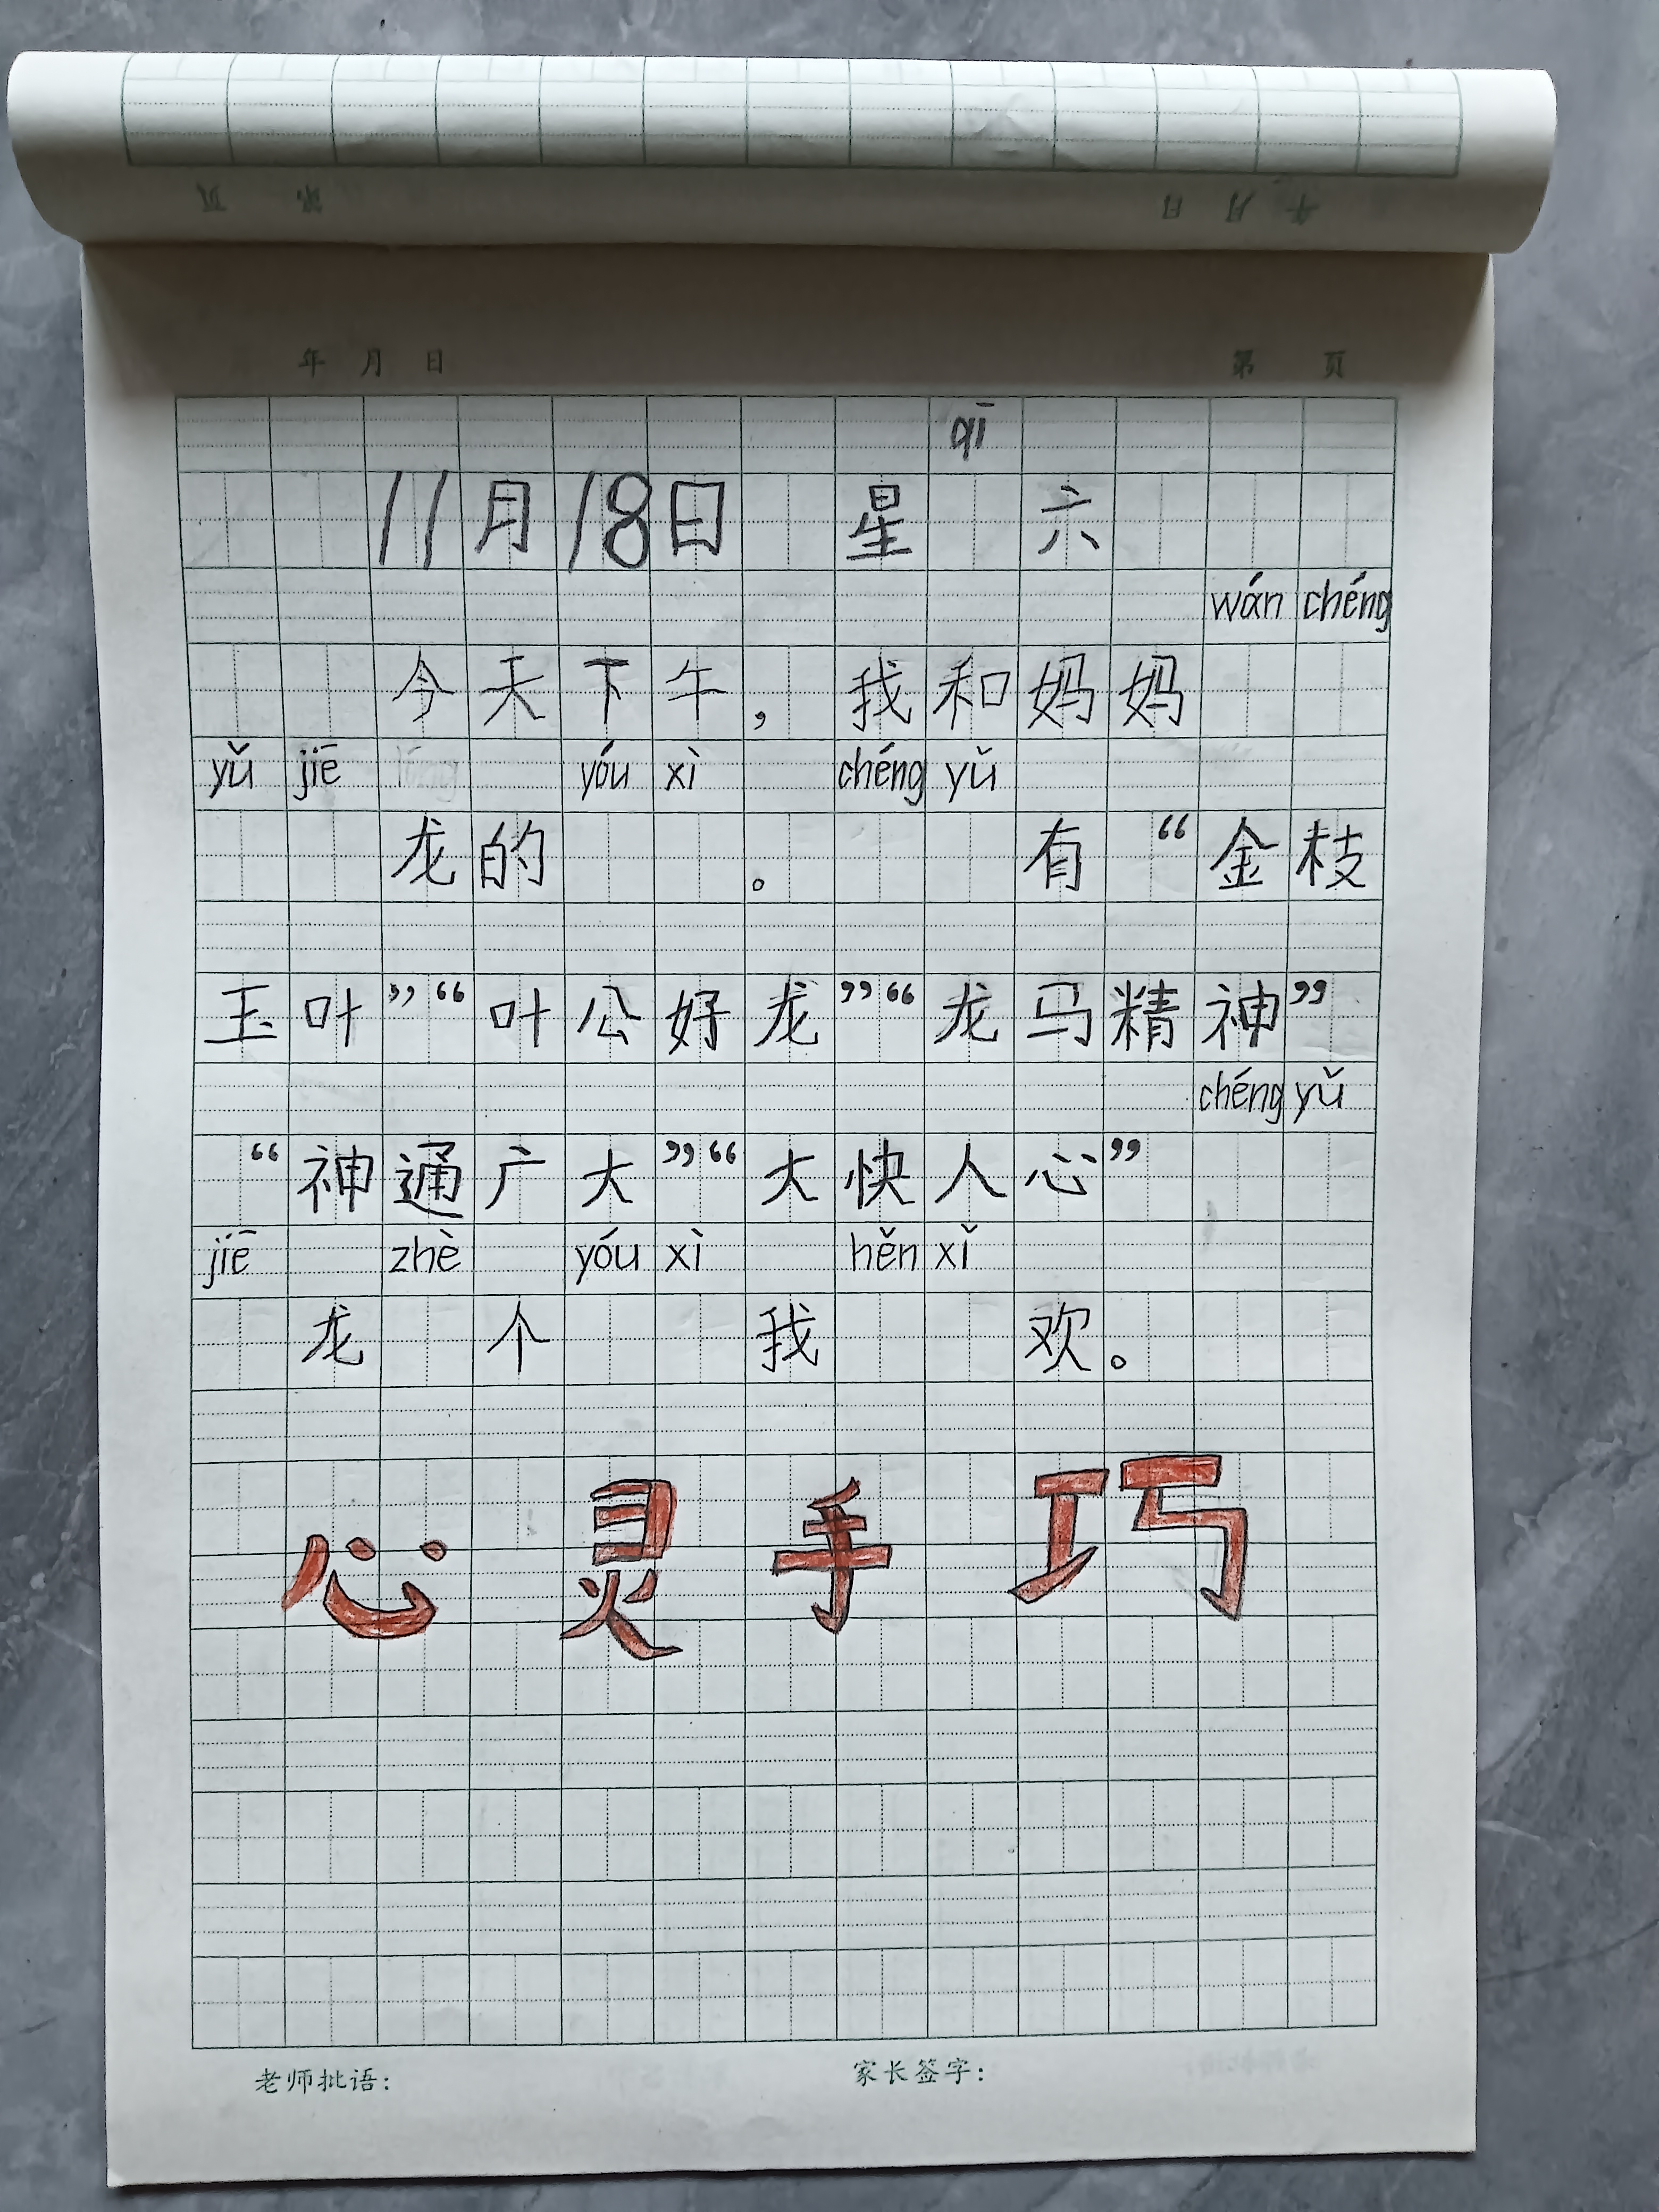 年 月 日 第 页
qī
11月18日 星 六
wán chéng
今天下午，我和妈妈
yǔ jiē yóu xì chéng yǔ
龙的 。 有“金枝
玉叶”“叶公好龙”“龙马精神”
chéng yǔ
“神通广大”“大快人心”
jiē zhè yóu xì hěn xǐ
龙 个 我 欢。
心灵手巧
老师批语： 家长签字：